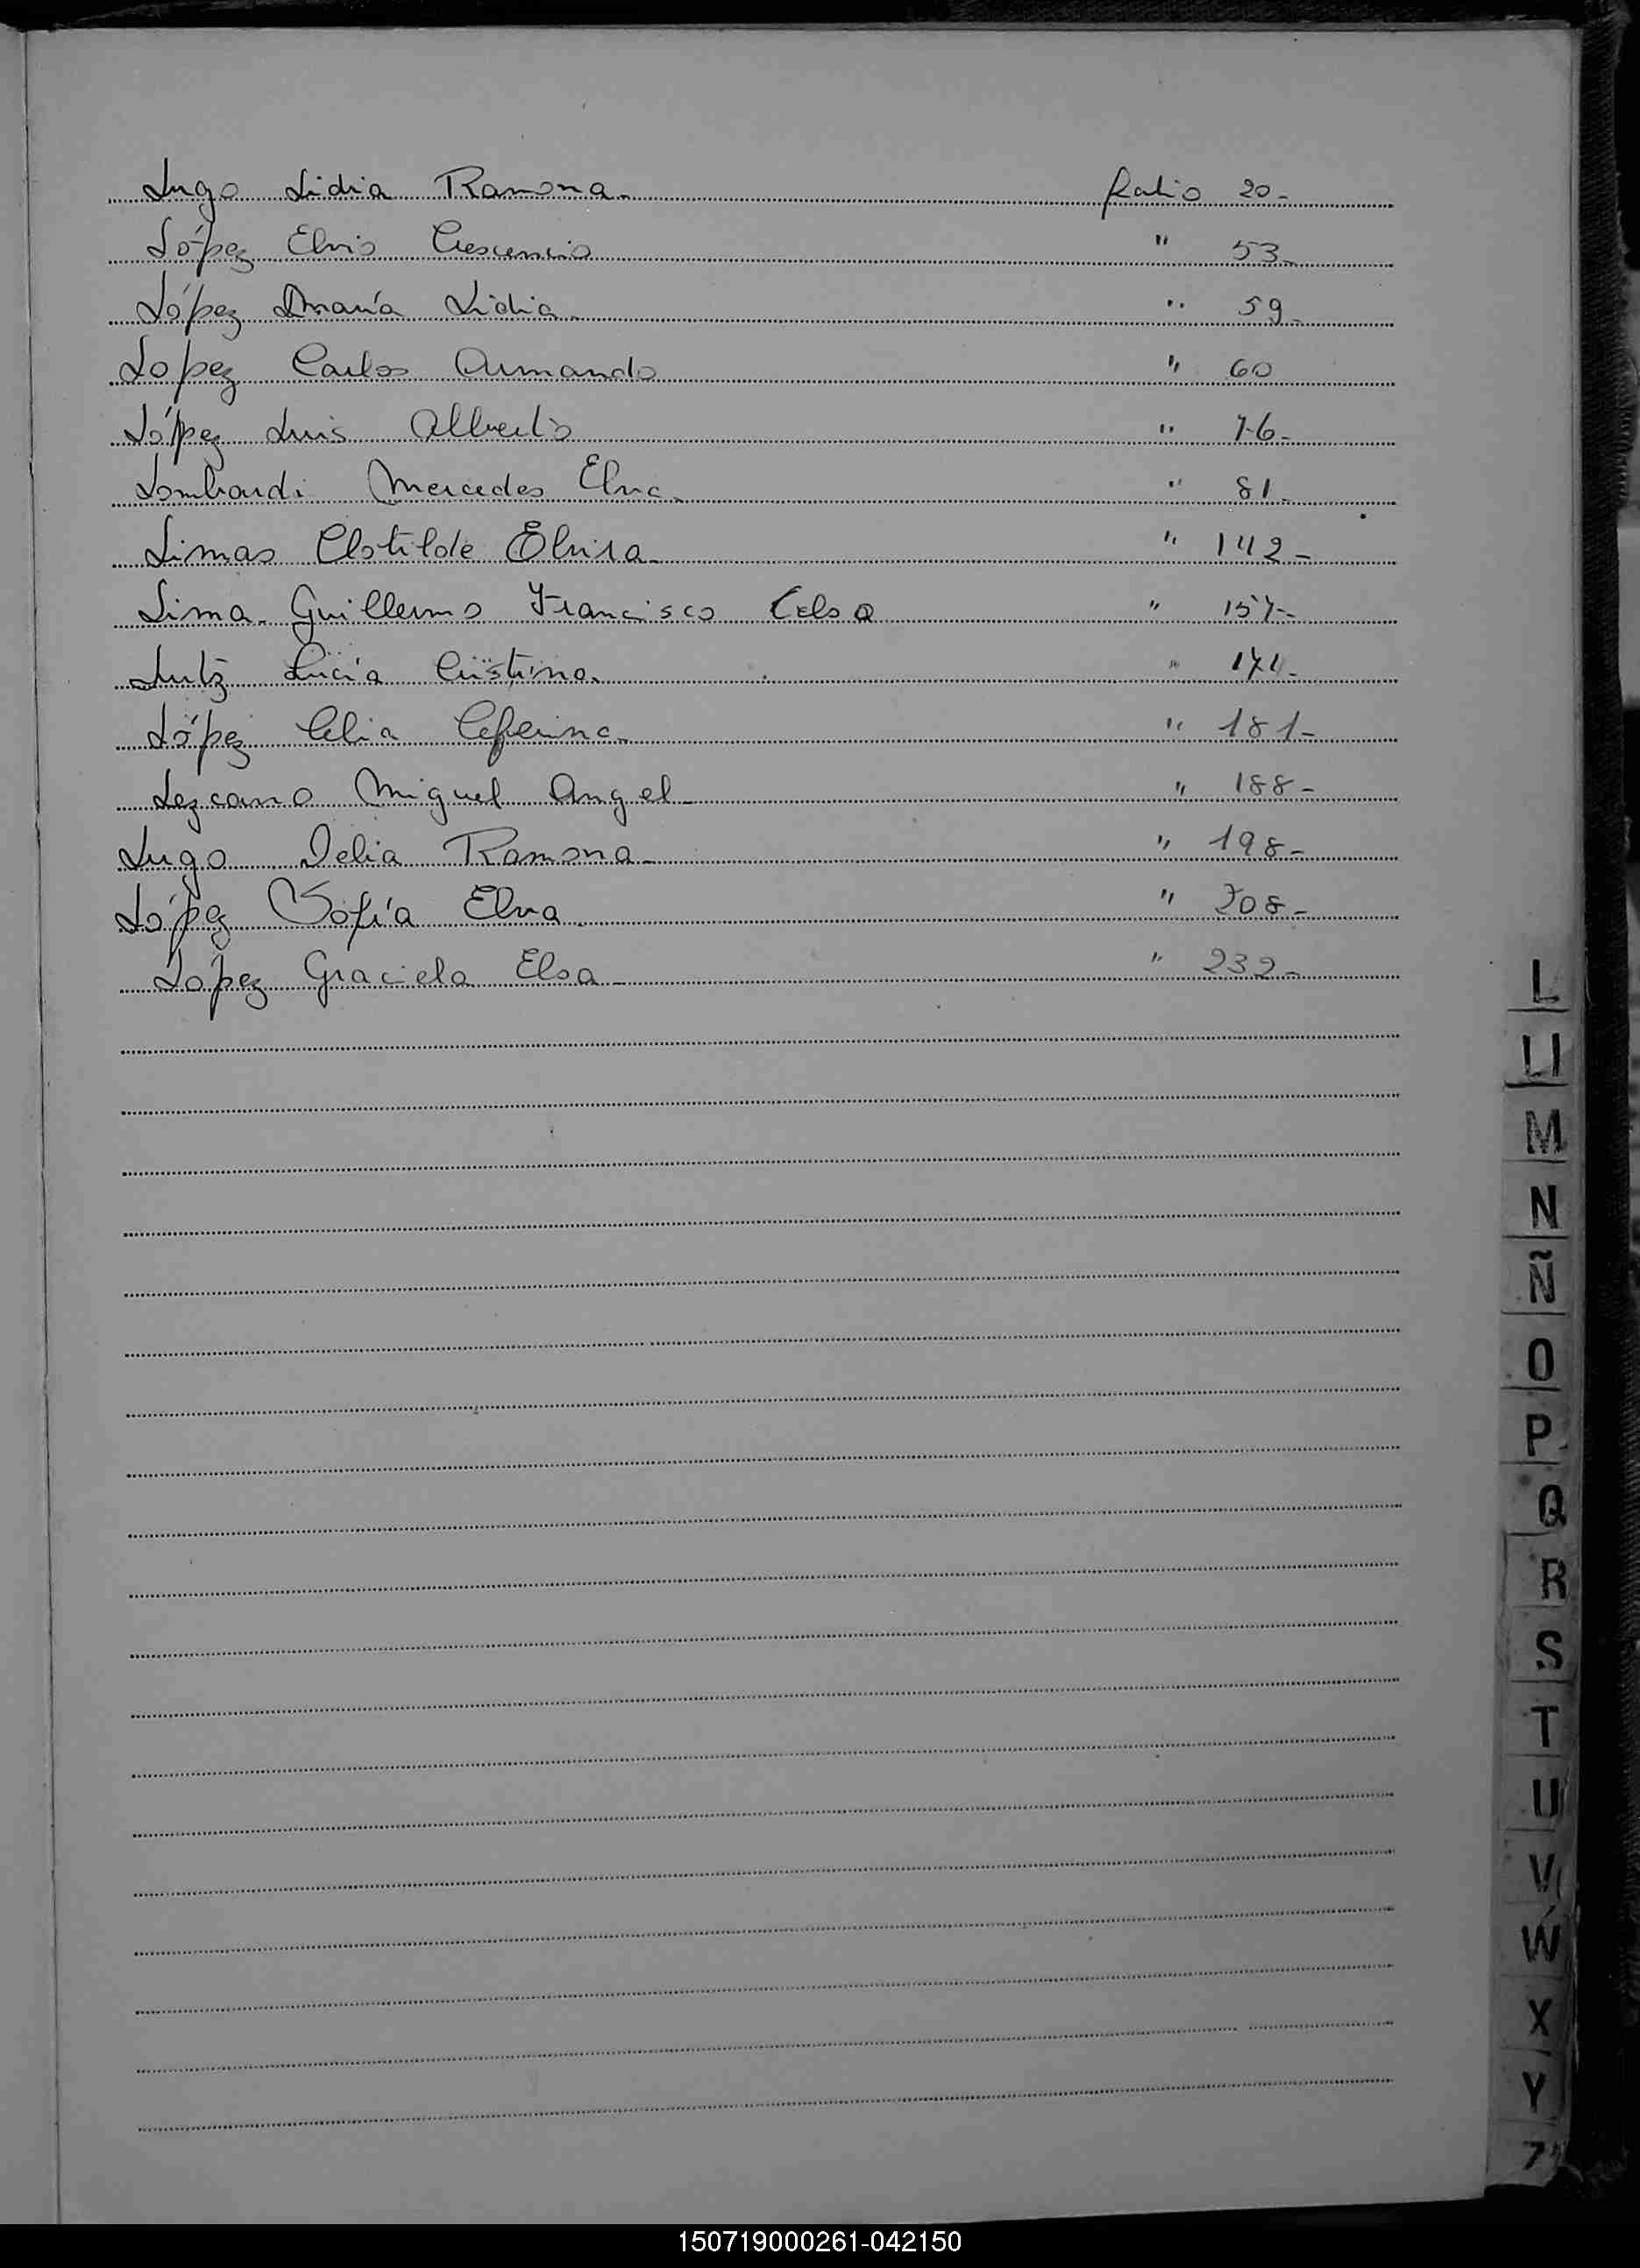 Lugo Lidia Ramona. folio 20-
López Elvio Crescencio " 53-
López María Lidia. " 59-
Lopez Carlos Armando " 60
López Luis Alberto " 76-
Lombardi Mercedes Elva. " 81-
Limas Clotilde Elvira. " 142-
Lima. Guillermo Francisco Celso " 157-
Lutz Lucía Cristina. " 171-
López Celia Ceferina- " 181-
Lezcano Miguel Angel- " 188-
Lugo Delia Ramona- " 198-
López Sofía Elva " 208-
López Graciela Elsa- " 232-
L
Ll
M
N
Ñ
O
P
Q
R
S
T
U
V
W
X
Y
Z
150719000261-042150